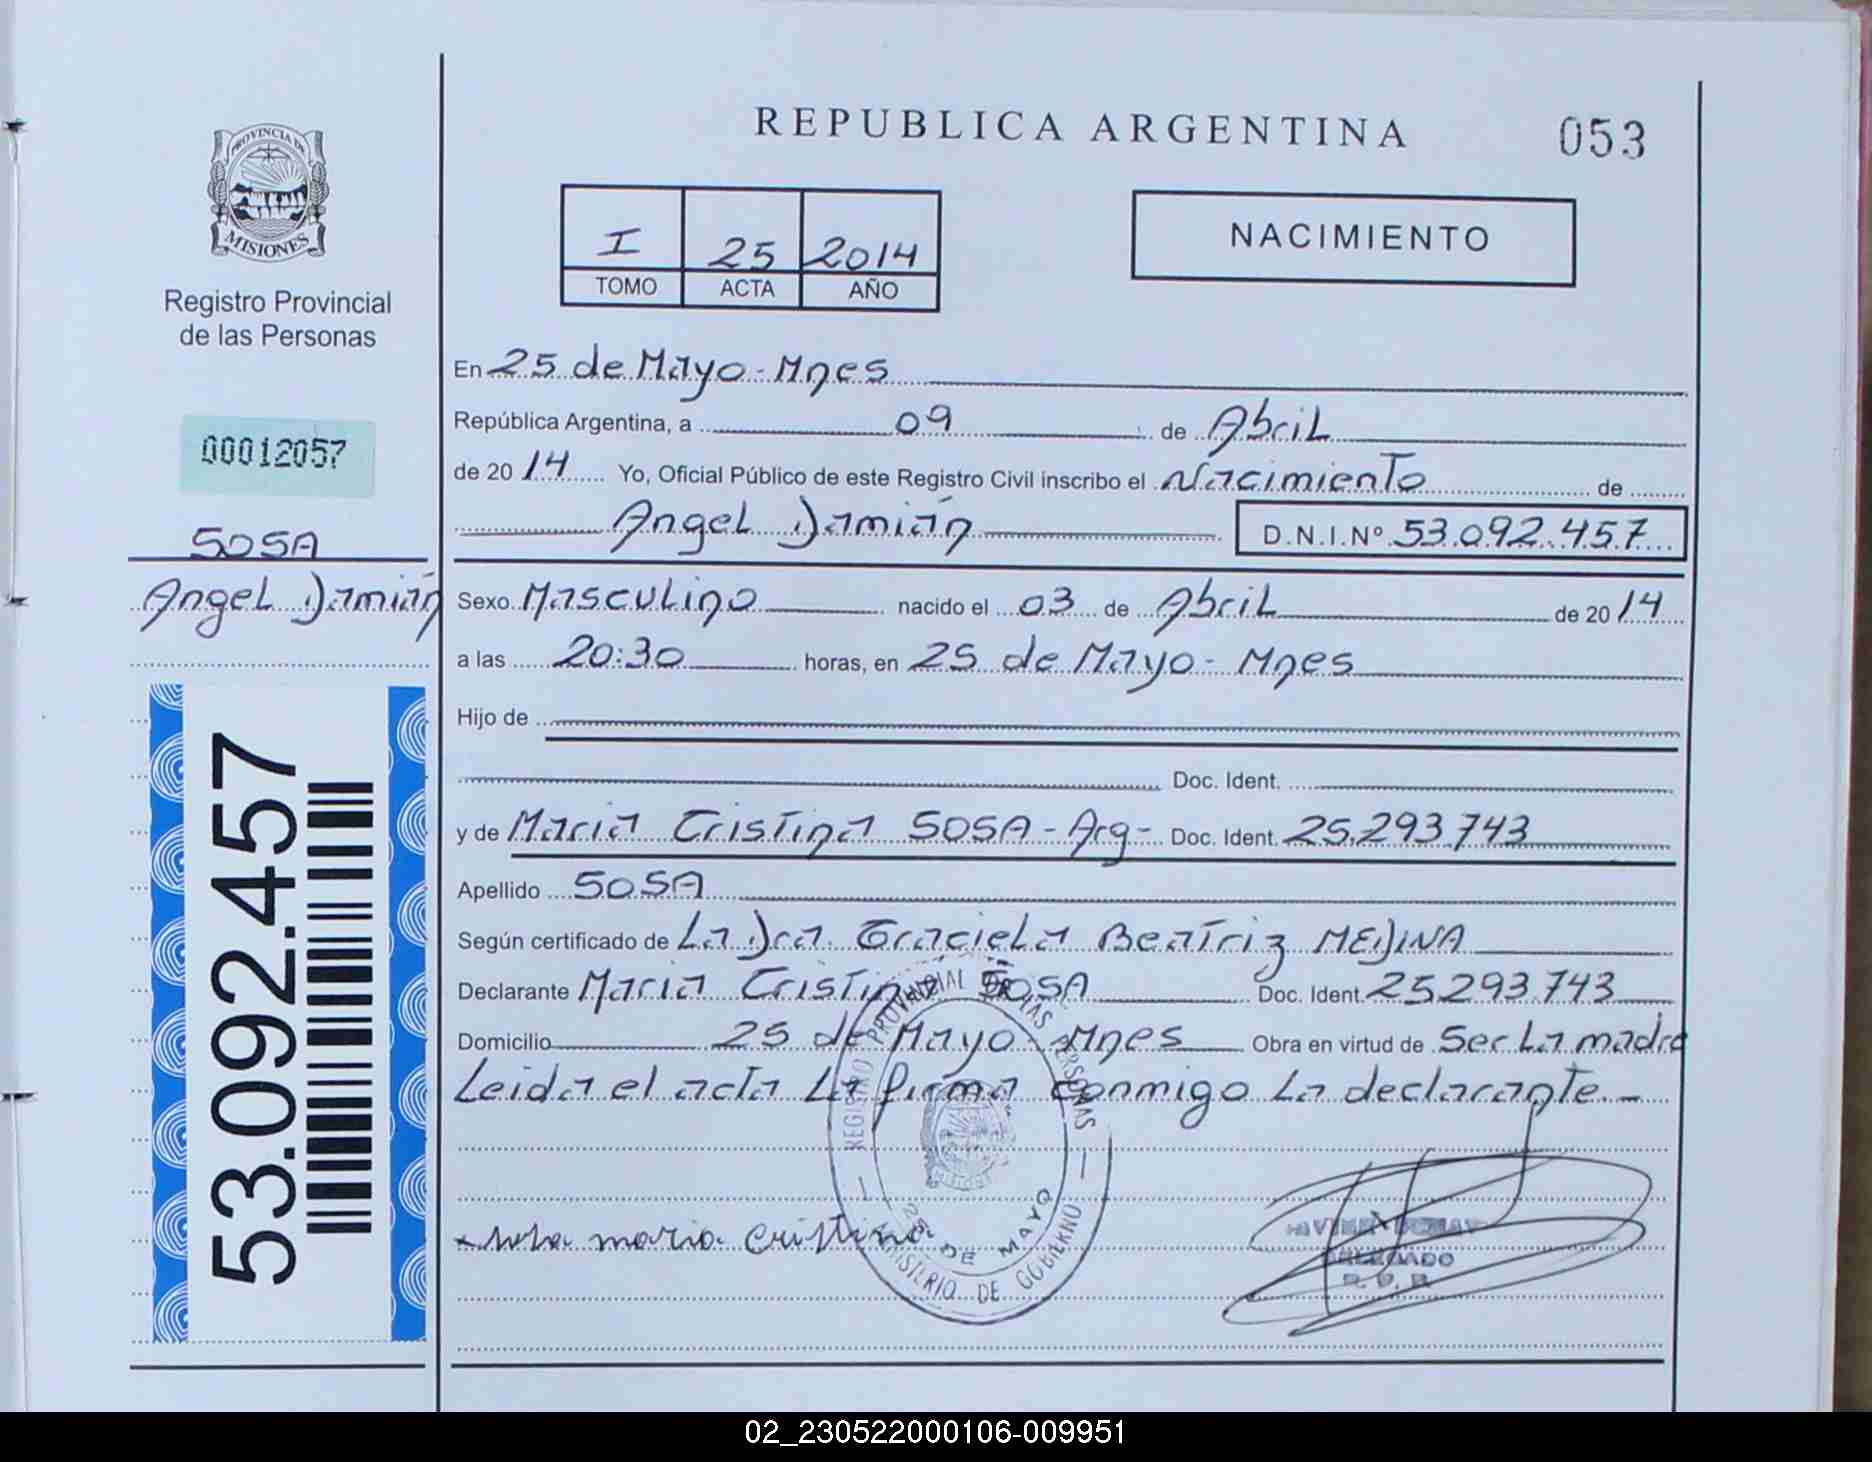 PROVINCIA DE
MISIONES
Registro Provincial
de las Personas
00012057
SOSA
Angel Damián
53.092.457
REPUBLICA ARGENTINA
053
I 25 2014
TOMO ACTA AÑO
NACIMIENTO
En 25 de Mayo - Mnes
República Argentina, a 09 de Abril
de 2014 Yo, Oficial Público de este Registro Civil inscribo el Nacimiento de
Angel Damián D.N.I.Nº 53.092.457
Sexo Masculino nacido el 03 de Abril de 2014
a las 20:30 horas, en 25 de Mayo - Mnes
Hijo de
Doc. Ident.
y de Maria Cristina SOSA - Arg - Doc. Ident. 25.293.743
Apellido SOSA
Según certificado de La Dra. Graciela Beatriz MEDINA
Declarante Maria Cristina SOSA Doc. Ident. 25.293.743
Domicilio 25 de Mayo - Mnes Obra en virtud de Ser La madre
Leida el acta La firma conmigo La declarante.-
REGISTRO PROVINCIAL DE LAS PERSONAS
25 DE MAYO
MINISTERIO DE GOBIERNO
maria Cristina
DELEGADO
R. P. P.
02_230522000106-009951